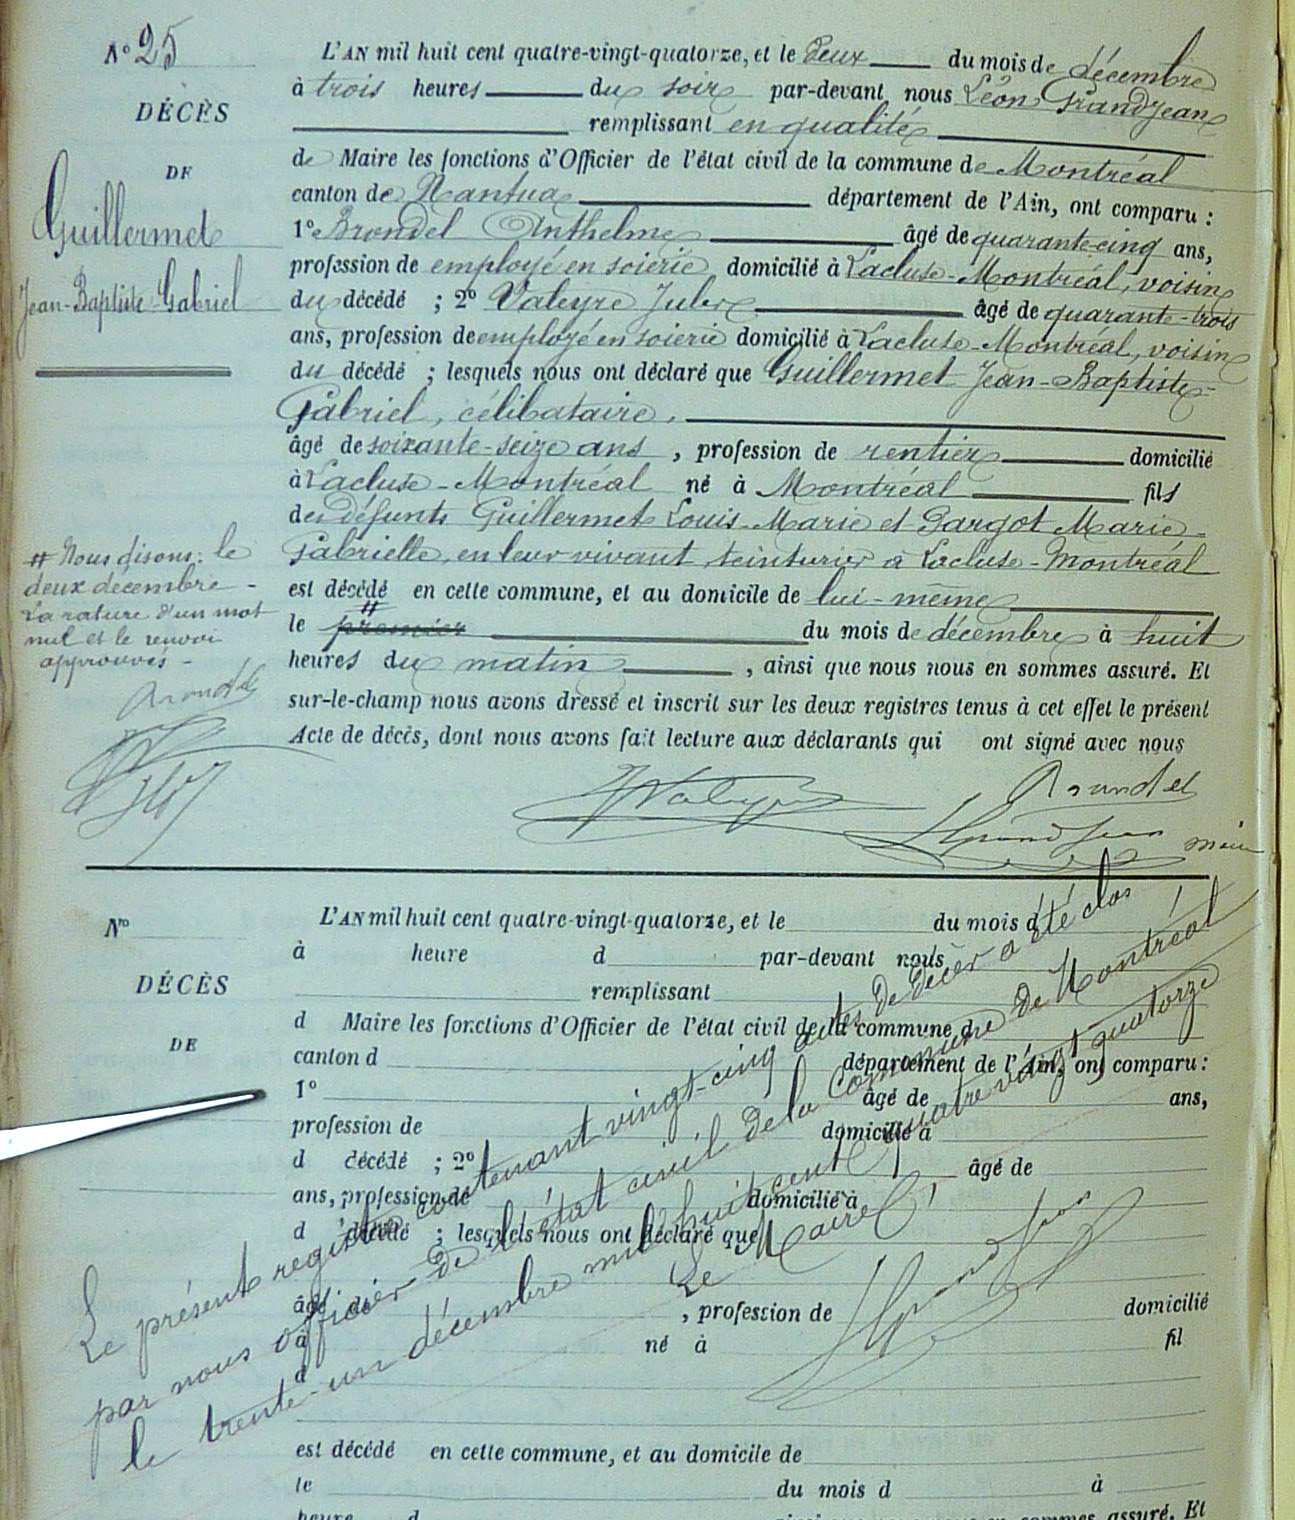 N° 25
DÉCÈS
DE
Guillermet
Jean-Baptiste-Gabriel
L'AN mil huit cent quatre-vingt-quatorze, et le deux du mois de décembre
à trois heures du soir par-devant nous Léon Grandjean
remplissant en qualité
de Maire les fonctions d'Officier de l'état civil de la commune de Montréal
canton de Nantua département de l'Ain, ont comparu :
1° Brondel Anthelme âgé de quarante-cinq ans,
profession de employé en soierie, domicilié à Lacluse-Montréal, voisin
du décédé ; 2° Valeyre Jules âgé de quarante-trois
ans, profession de employé en soierie domicilié à Lacluse-Montréal, voisin
du décédé ; lesquels nous ont déclaré que Guillermet Jean-Baptiste-
Gabriel, célibataire,
âgé de soixante-seize ans, profession de rentier domicilié
à Lacluse-Montréal né à Montréal fils
des défunts Guillermet Louis-Marie et Gargot Marie-
Gabrielle, en leur vivant teinturier à Lacluse-Montréal
est décédé en cette commune, et au domicile de lui-même
le # premier du mois de décembre à huit
heures du matin, ainsi que nous nous en sommes assuré. Et
sur-le-champ nous avons dressé et inscrit sur les deux registres tenus à cet effet le présent
Acte de décès, dont nous avons fait lecture aux déclarants qui ont signé avec nous
# Nous disons: le
deux décembre -
La rature d'un mot
nul et le renvoi
approuvés -
Brondel
Valeyre
Brondel
LGrandjean maire
N°
DÉCÈS
DE
L'AN mil huit cent quatre-vingt-quatorze, et le du mois d
à heure d par-devant nous
remplissant
d Maire les fonctions d'Officier de l'état civil de la commune d
canton d département de l'Ain, ont comparu :
1° âgé de ans,
profession de domicilié à
d décédé ; 2° âgé de
ans, profession de domicilié à
d décédé ; lesquels nous ont déclaré que
âgé de , profession de domicilié
à né à fil
d
est décédé en cette commune, et au domicile de
le du mois d à
heure d ainsi que nous nous en sommes assuré. Et
Le présent registre contenant vingt-cinq actes de décès a été clos
par nous officier de l'état civil de la commune de Montréal
le trente-un décembre mil huit cent quatre vingt quatorze
Le Maire,
LGrandjean